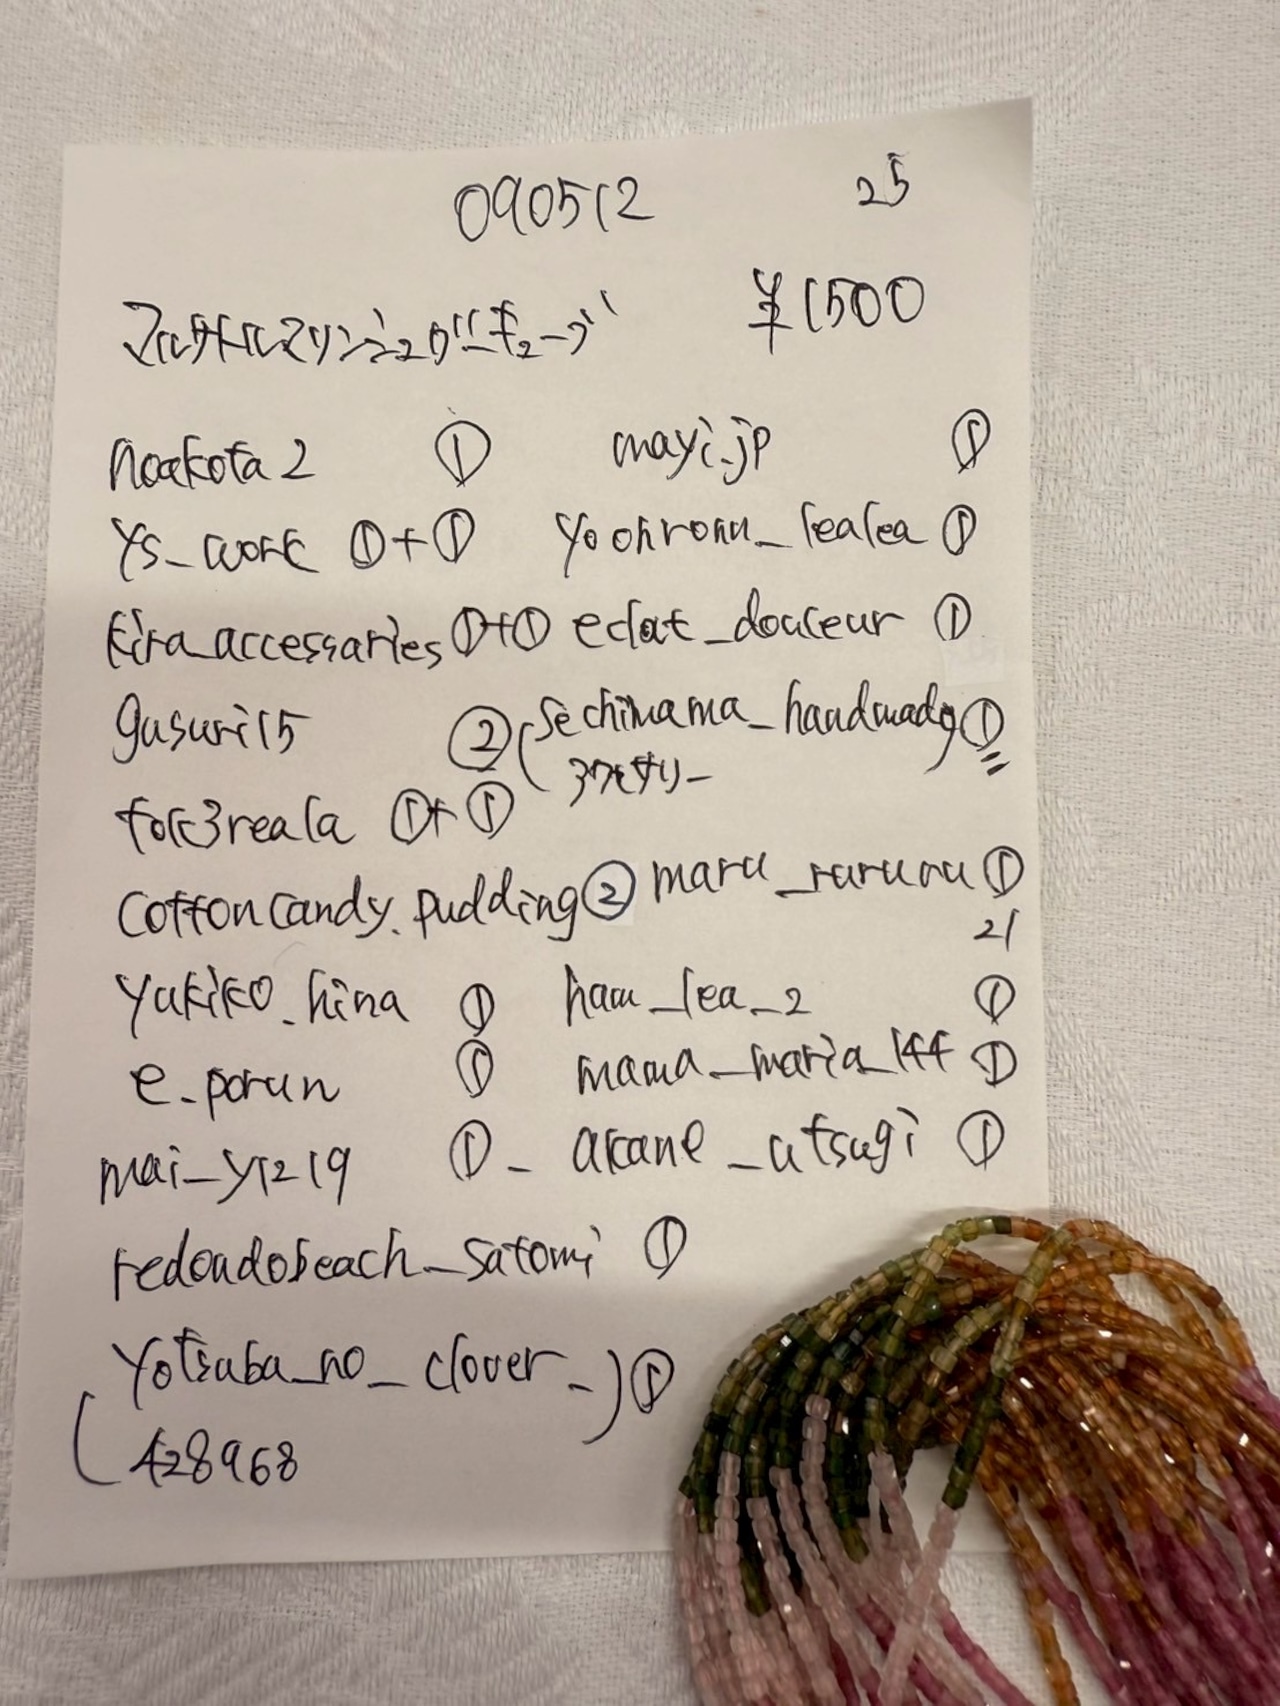 090512 25
マルチトルマリンジュクミニキューブ ¥1500
noakota2 ① mayi.jp ①
ys_work ①+① yoohronu_lealea ①
kira_accessaries ①+① eclat_douceur ①
gusuri15 ② (sechimama_handmade ①
アクセサリー
fork3reala ①+①
cottoncandy.pudding ② maru_rururu ①
21
yukiko_hina ① hau_lea_2 ①
e_porun ① mama_maria_144 ①
mai_y1219 ① - akane_utsugi ①
redondobeach_satomi ①
(yotsuba_no_clover_) ①
428968